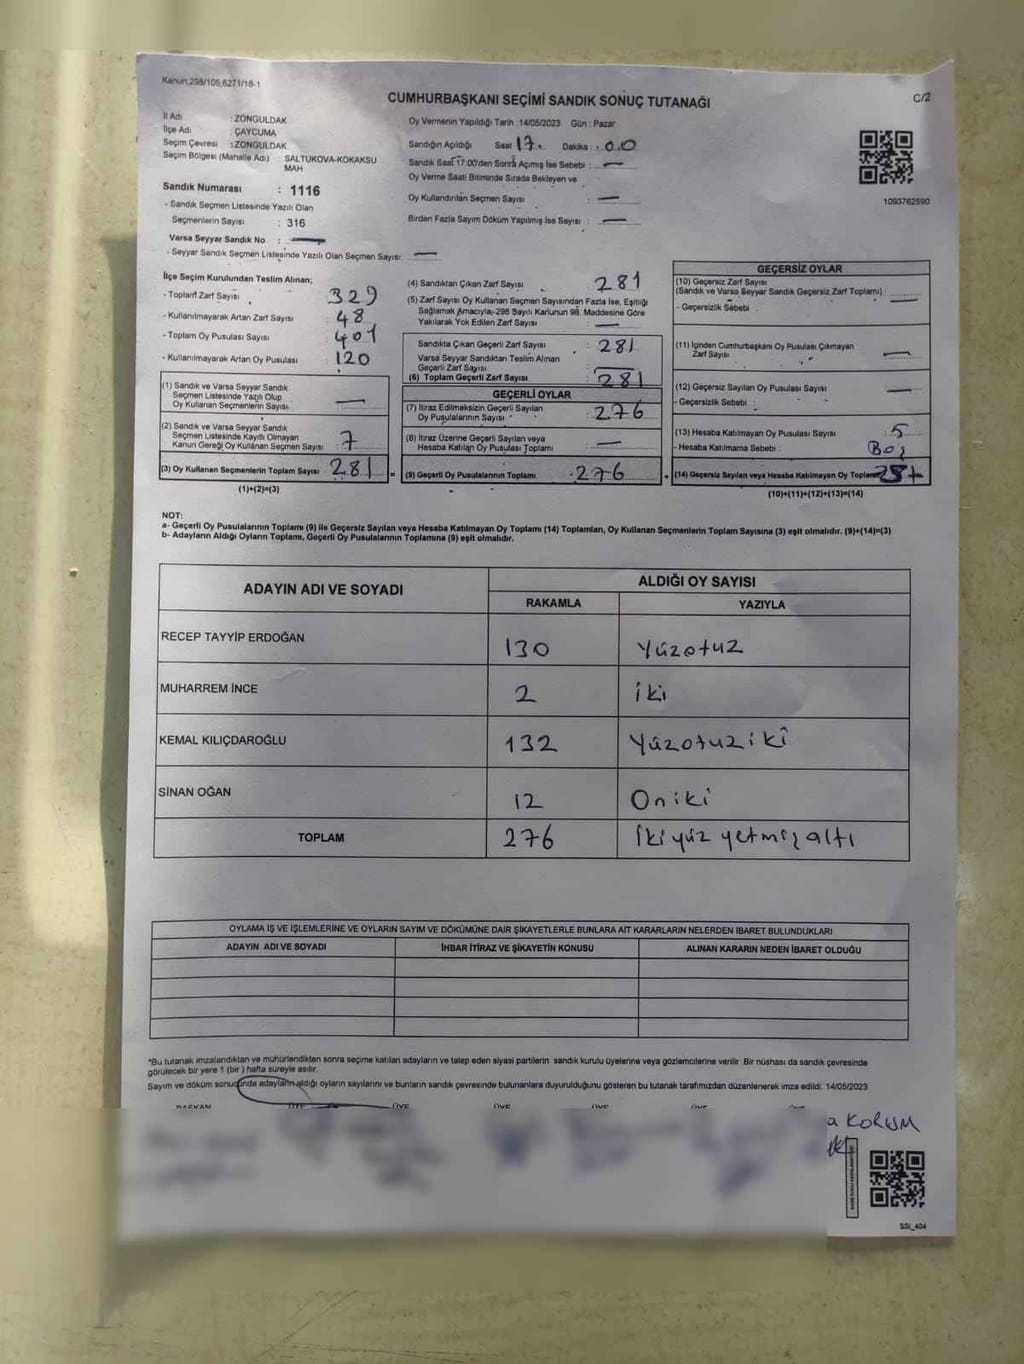 Kanun 298/105,6271/18-1
CUMHURBAŞKANI SEÇİMİ SANDIK SONUÇ TUTANAĞI
C/2
İl Adı : ZONGULDAK
İlçe Adı : ÇAYCUMA
Seçim Çevresi : ZONGULDAK
Seçim Bölgesi (Mahalle Adı) SALTUKOVA-KOKAKSU
MAH
Sandık Numarası : 1116
- Sandık Seçmen Listesinde Yazılı Olan
Seçmenlerin Sayısı : 316
Varsa Seyyar Sandık No : —
- Seyyar Sandık Seçmen Listesinde Yazılı Olan Seçmen Sayısı: —
Oy Vermenin Yapıldığı Tarih :14/05/2023 Gün : Pazar
Sandığın Açıldığı Saat 17. Dakika : 00
Sandık Saat 17:00'den Sonra Açımış İse Sebebi : —
Oy Verme Saati Bitiminde Sırada Bekleyen ve
Oy Kullandırılan Seçmen Sayısı : —
Birden Fazla Sayım Döküm Yapılmış İse Sayısı : —
1093762590
İlçe Seçim Kurulundan Teslim Alınan;
- Toplam Zarf Sayısı : 329
- Kullanılmayarak Artan Zarf Sayısı : 48
- Toplam Oy Pusulası Sayısı : 401
- Kullanılmayarak Artan Oy Pusulası : 120
(1) Sandık ve Varsa Seyyar Sandık
Seçmen Listesinde Yazılı Olup
Oy Kullanan Seçmenlerin Sayısı —
(2) Sandık ve Varsa Seyyar Sandık
Seçmen Listesinde Kayıtlı Olmayan
Kanun Gereği Oy Kullanan Seçmen Sayısı : 7
(3) Oy Kullanan Seçmenlerin Toplam Sayısı 281 =
(1)+(2)=(3)
(4) Sandıktan Çıkan Zarf Sayısı : 281
(5) Zarf Sayısı Oy Kullanan Seçmen Sayısından Fazla İse, Eşitliği
Sağlamak Amacıyla, 298 Sayılı Kanunun 98. Maddesine Göre
Yakılarak Yok Edilen Zarf Sayısı : —
Sandıkta Çıkan Geçerli Zarf Sayısı : 281
Varsa Seyyar Sandıktan Teslim Alınan
Geçerli Zarf Sayısı
(6) Toplam Geçerli Zarf Sayısı : 281
GEÇERLİ OYLAR
(7) İtiraz Edilmeksizin Geçerli Sayılan
Oy Pusulalarının Sayısı : 276
(8) İtiraz Üzerine Geçerli Sayılan veya
Hesaba Katılan Oy Pusulası Toplamı : —
(9) Geçerli Oy Pusulalarının Toplamı 276 +
GEÇERSİZ OYLAR
(10) Geçersiz Zarf Sayısı
(Sandık ve Varsa Seyyar Sandık Geçersiz Zarf Toplamı) —
- Geçersizlik Sebebi :
(11) İçinden Cumhurbaşkanı Oy Pusulası Çıkmayan
Zarf Sayısı —
(12) Geçersiz Sayılan Oy Pusulası Sayısı —
- Geçersizlik Sebebi :
(13) Hesaba Katılmayan Oy Pusulası Sayısı 5
- Hesaba Katılmama Sebebi : Boş
(14) Geçersiz Sayılan veya Hesaba Katılmayan Oy Toplamı
(10)+(11)+(12)+(13)=(14)
NOT:
a- Geçerli Oy Pusulalarının Toplamı (9) ile Geçersiz Sayılan veya Hesaba Katılmayan Oy Toplamı (14) Toplamları, Oy Kullanan Seçmenlerin Toplam Sayısına (3) eşit olmalıdır. (9)+(14)=(3)
b- Adayların Aldığı Oyların Toplamı, Geçerli Oy Pusulalarının Toplamına (9) eşit olmalıdır.
ADAYIN ADI VE SOYADI ALDIĞI OY SAYISI
RAKAMLA YAZIYLA
RECEP TAYYİP ERDOĞAN 130 Yüzotuz
MUHARREM İNCE 2 iki
KEMAL KILIÇDAROĞLU 132 Yüzotuziki
SİNAN OĞAN 12 Oniki
TOPLAM 276 İkiyüz yetmiş altı
OYLAMA İŞ VE İŞLEMLERİNE VE OYLARIN SAYIM VE DÖKÜMÜNE DAİR ŞİKAYETLERLE BUNLARA AİT KARARLARIN NELERDEN İBARET BULUNDUKLARI
ADAYIN ADI VE SOYADI İHBAR İTİRAZ VE ŞİKAYETİN KONUSU ALINAN KARARIN NEDEN İBARET OLDUĞU
*Bu tutanak imzalandıktan ve mühürlendikten sonra seçime katılan adayların ve talep eden siyasi partilerin sandık kurulu üyelerine veya gözlemcilerine verilir. Bir nüshası da sandık çevresinde
görülecek bir yere 1 (bir) hafta süreyle asılır.
Sayım ve döküm sonucunda adayların aldığı oyların sayılarını ve bunların sandık çevresinde bulunanlara duyurulduğunu gösteren bu tutanak tarafımızdan düzenlenerek imza edildi. 14/05/2023
BAŞKAN ÜYE ÜYE ÜYE ÜYE ÜYE ÜYE
a KORUM
SSI_404